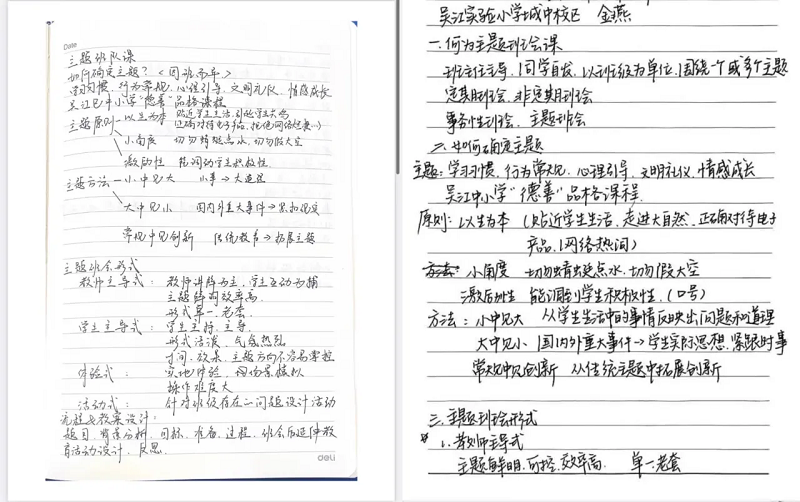 Date
主题班队课
如何确定主题？<因班而异>
学习习惯，行为常规，心理引导，文明礼仪，情感成长
吴江区中小学“德善”品格课程
主题原则 以生为本 贴近学生生活，引起学生共鸣
(正确对待电子产品，拒绝网络
小角度 切勿蜻蜓点水，切勿假大空
激励性 能调动学生积极性
主题方法 小中见大 小事→大道理
大中见小 国内外重大事件→紧扣现实
常规中见创新 传统教育→拓展主题
主题班会形式
教师主导式：教师讲解为主，学生互动为辅
主题鲜明效率高
形式单一，老套
学生主导式：学生主持、主导
形式活泼，气氛热烈
时间、效果、主题方向不容易掌控
体验式：实地体验，同场景模拟
操作难度大
活动式：针对班级存在一问题设计活动
流程与教案设计：
题目，背景分析，目标，准备，过程，班会后延伸教
育活动设计，反思.
deli
吴江实验小学城中校区 金燕
一.何为主题班会课
班主任主导，同学自发，以班级为单位，围绕一个或多个主题
定期班会，非定期班会
事务性班会，主题班会
二.如何确定主题
主题：学习习惯，行为常规，心理引导，文明礼仪，情感成长
吴江中小学“德善”品格课程.
原则：以生为本（贴近学生生活，走进大自然，正确对待电子
产品，网络热词）
方法：小角度 切勿蜻蜓点水，切勿假大空
激励性 能调到学生积极性，（口号）
方法：小中见大 从学生生活中的事情反映出问题和道理
大中见小 国内外重大事件→学生实际思想，紧跟时事
常规中见创新 从传统主题中拓展创新
三.主题班会形式
* 1.教师主导式
主题鲜明，可控，效率高. 单一老套